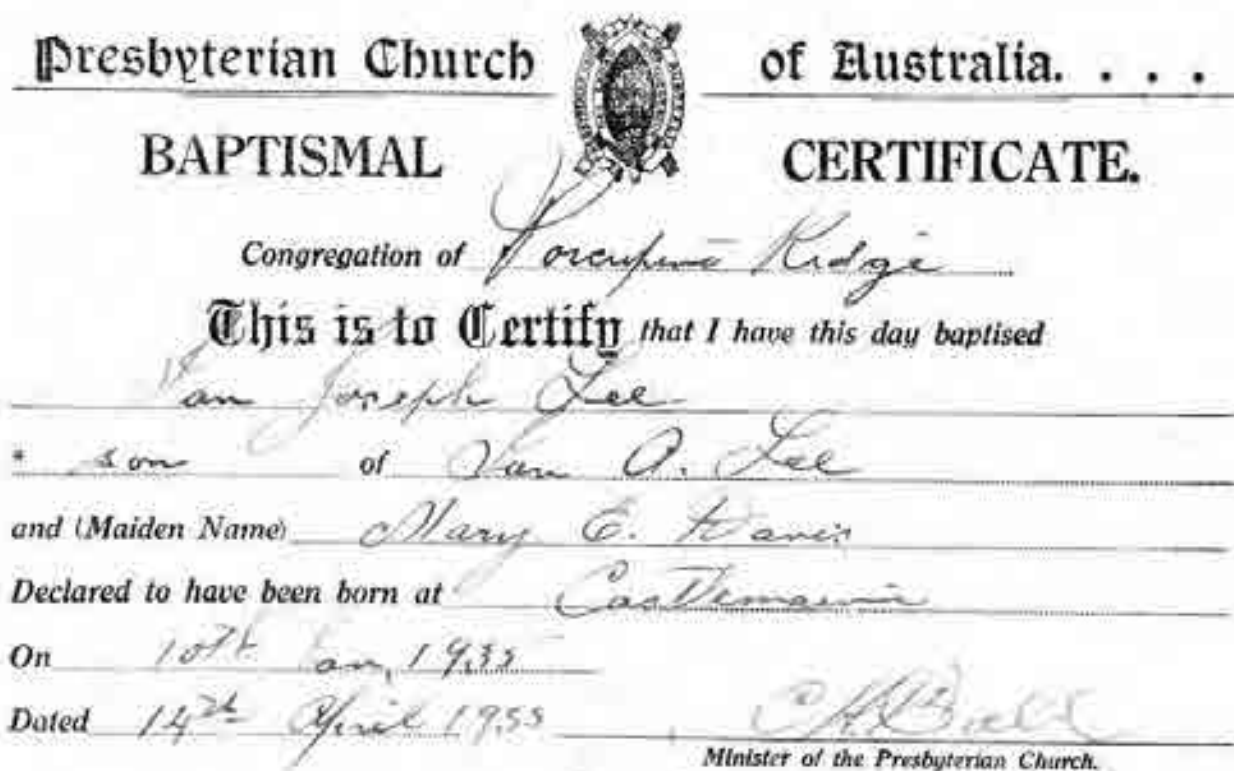 Presbyterian Church of Australia. . . .
BAPTISMAL CERTIFICATE.
Congregation of Porcupine Ridge
This is to Certify that I have this day baptised
Joseph Lee
* son of A. Lee
and (Maiden Name) Mary E. Davis
Declared to have been born at Castlemaine
On 10th Jan, 1935
Dated 14th April 1935
Minister of the Presbyterian Church.